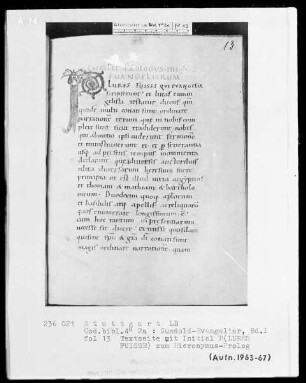 13
PLURES FUISSE QUI EVANGELIA
scripserunt et lucas evan
gelista testatur dicens qm
quidē multi conati sunt ordinare
narrationē rerum que in nobis com
plete sunt sicut tradiderunt nobis
qui ab initio ipsi viderunt sermonē
et ministraverunt ei et perseverantia
usq; ad presens tempus monimenta
declarant que a diversis auctoribus
edita diversarum heresium fuere
principia ut est illud iuxta aegyptios
et thomam et mathiam et bartholo
meum. Duodecim quoq; apostolorum
et basilidis atq; apellis ac reliquorum
quos enumerare longissimum ē
cum hoc tantum in presentiarum
necesse sit dicere extitisse quosdam
qui sine spū et gra dī conati sunt
magis ordinare narrationē quam
236 021 Stuttgart LB
Cod.bibl.4° 2a: Gundold-Evangeliar, Bd.I
fol 13 Textseite mit Initial P(LURES
FUISSE) zum Hieronymus-Prolog
(Aufn.1963-67)